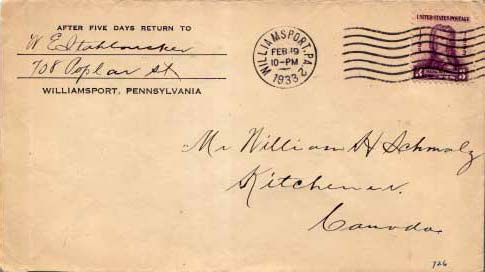 AFTER FIVE DAYS RETURN TO
W E
708 Poplar st
WILLIAMSPORT, PENNSYLVANIA
WILLIAMSPORT, PA. 2
FEB 19
10-PM
1933
UNITED STATES POSTAGE
3 3
Mr William H Schmalz
Kitchener.
Canada.
726